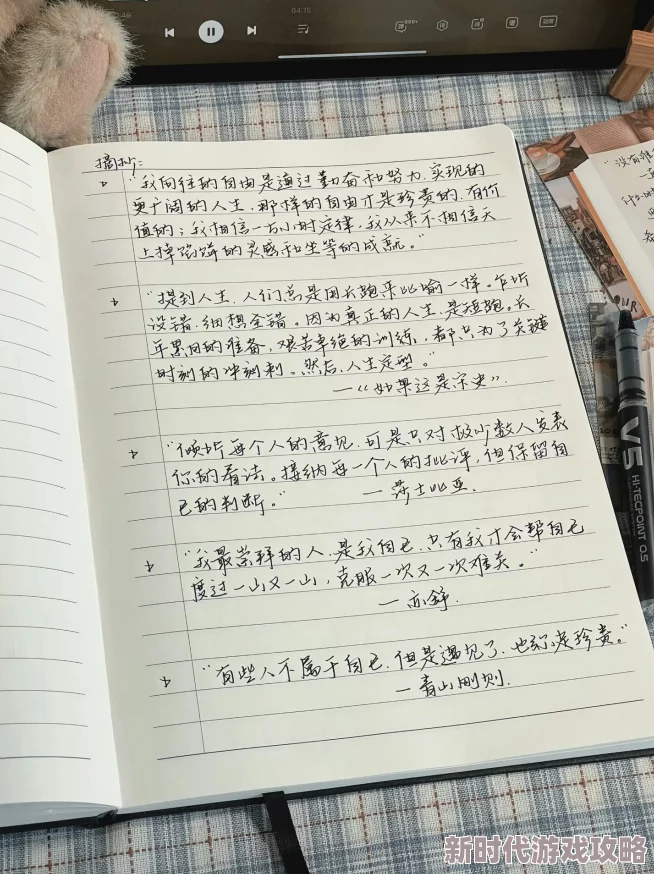 04:15
999+
词
摘抄:
"我向往的自由是通过勤奋和努力实现的
更广阔的人生,那样的自由才是珍贵的、有价
值的;我相信一万小时定律,我从来不相信天
上掉馅饼的灵感和坐等的成就。"
"提到人生,人们总是用长跑来比喻一样。乍听
没错,细想全错。因为真正的人生,是短跑。长
年累月的准备,艰苦卓绝的训练,都只为了关键
时刻的冲刺刺。然后,人生定型。"
—《如果这是宋史》.
"倾听每个人的意见,可是只对极少数人发表
你的看法。接纳每一个人的批评,但保留自
己的判断。" — 莎士比亚.
"我最崇拜的人,是我自己,只有我才会帮自己
度过一山又一山,克服一次又一次难关。"
— 亦舒.
"有些人不属于自己,但是遇见了,也弥足珍贵。"
— 青山刚则.
"没有谁
V5
HI-TECPOINT 0.5
OUR
新时代游戏攻略